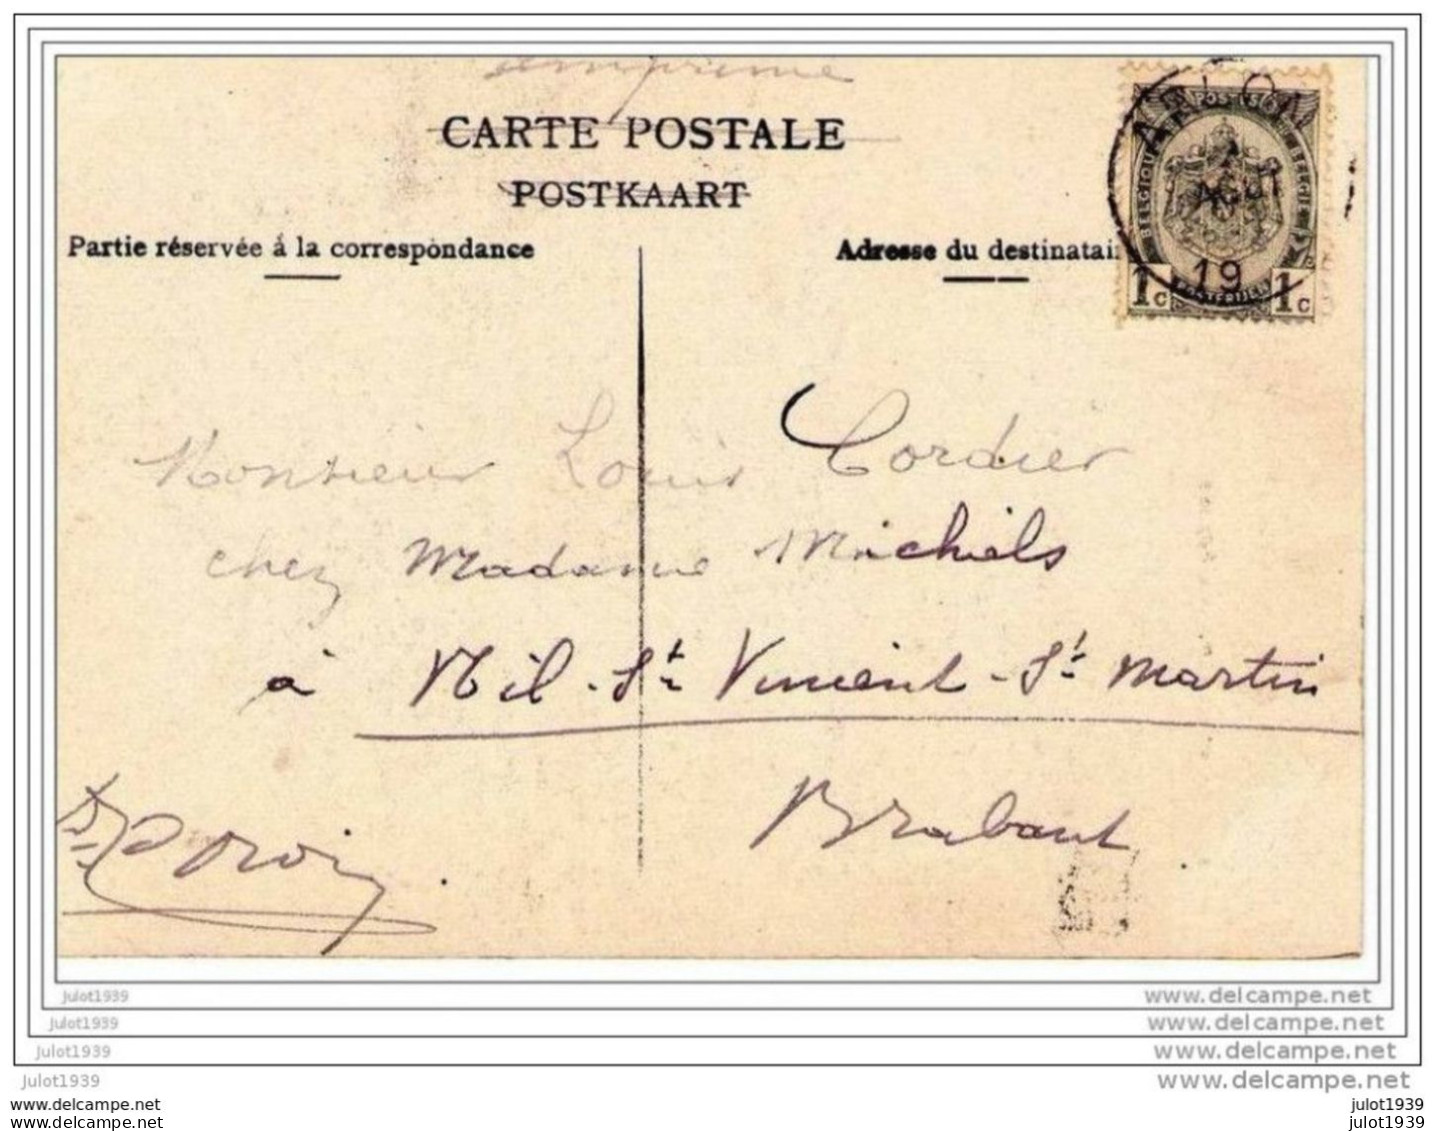 imprimé
CARTE POSTALE
POSTKAART
Partie réservée á la correspondance
Adresse du destinatai
ARLON
AOUT
19
BELGIQUE
BELGIE
POSTERIJEN
1c 1c
Monsieur Louis Cordier
chez Madame Michiels
à Nil-St Vincent-St Martin
Brabant
julot1939
www.delcampe.net
julot1939
www.delcampe.net
julot1939
www.delcampe.net
julot1939
www.delcampe.net
www.delcampe.net
julot1939
www.delcampe.net
julot1939